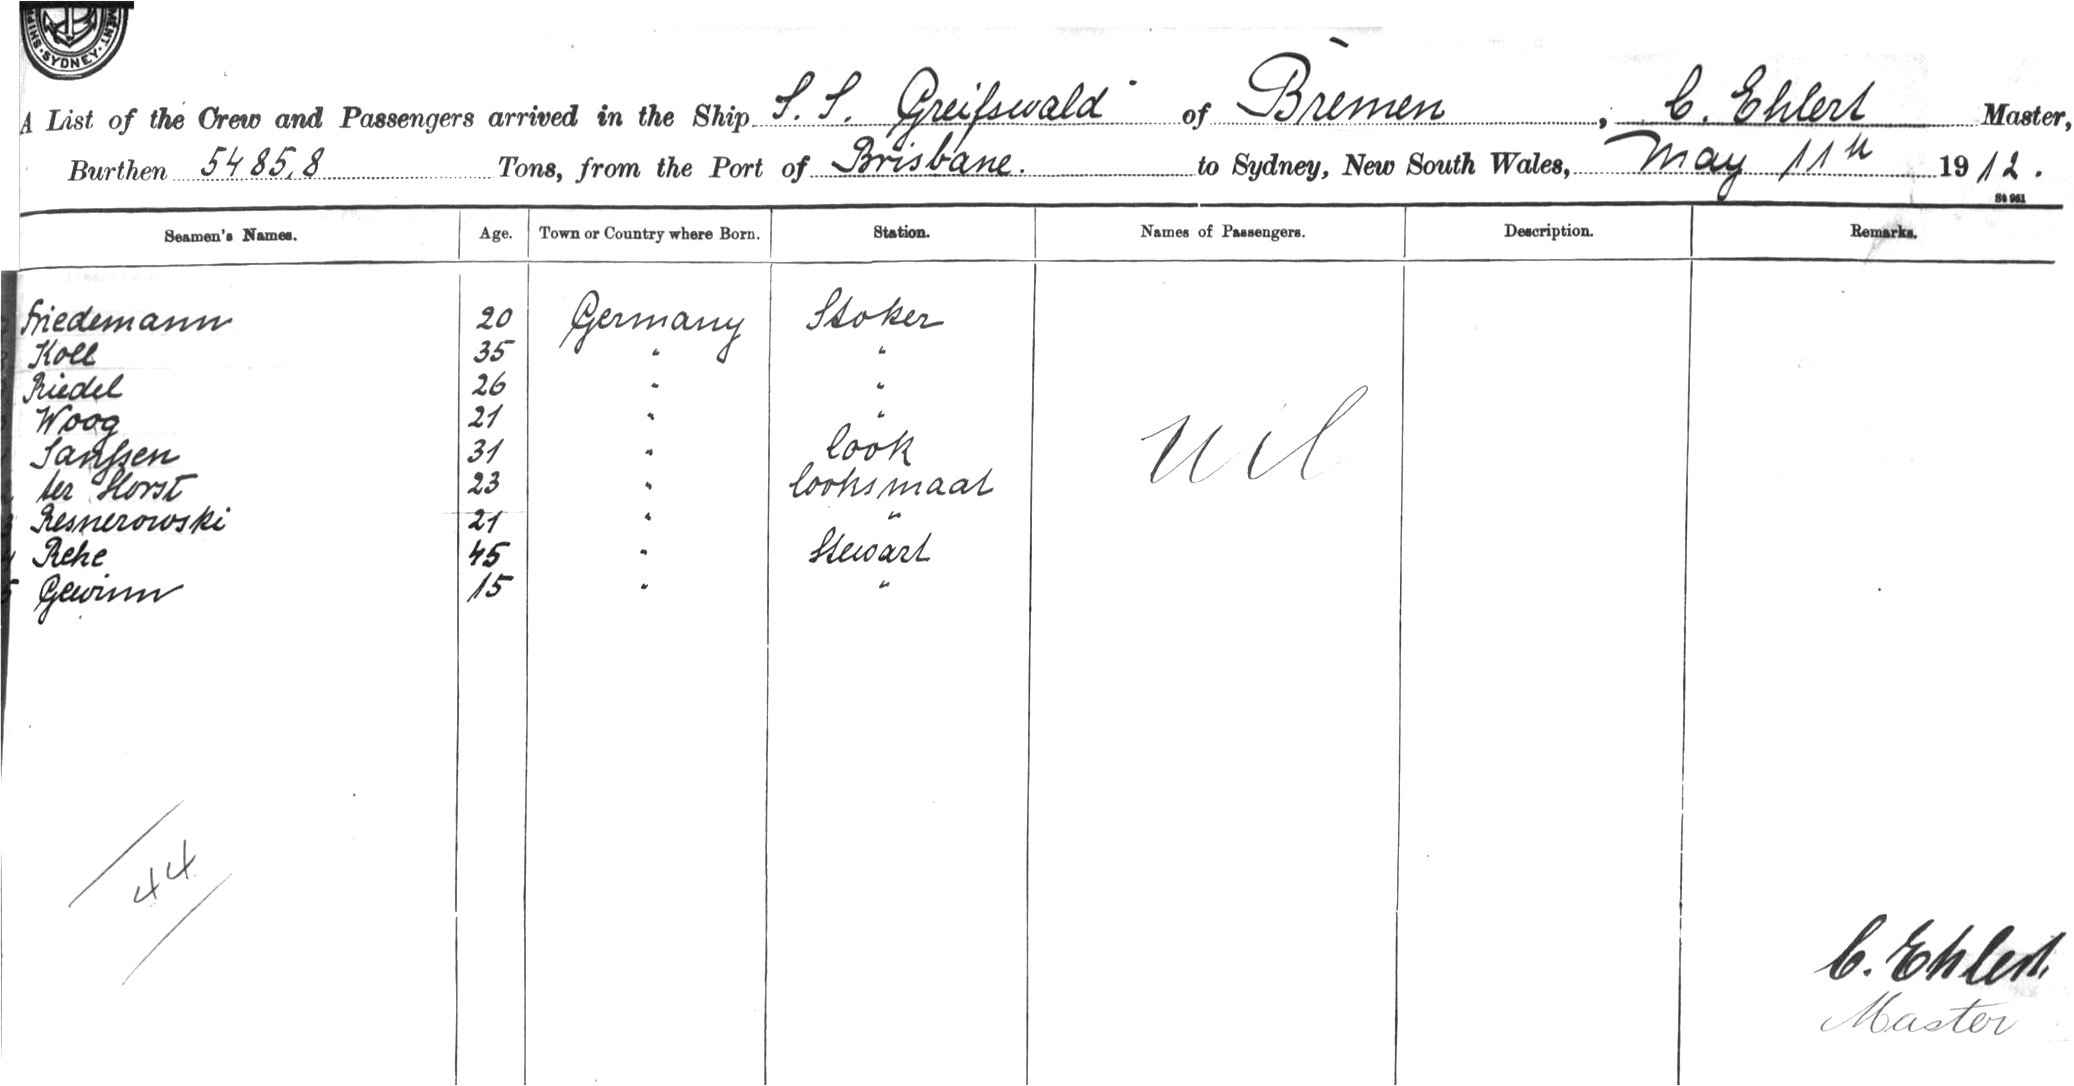 SHIP MENT · SYDNEY ·
A List of the Crew and Passengers arrived in the Ship S. S. Greifswald of Bremen, C. Ehlert Master,
Burthen 5485,8 Tons, from the Port of Brisbane. to Sydney, New South Wales, May 11th 1912.
St 951
Seamen's Names. Age. Town or Country where Born. Station. Names of Passengers. Description. Remarks.
Friedemann 20 Germany Stoker
Koll 35 " "
Riedel 26 " "
Woog 21 " "
Janssen 31 " Cook
ter Horst 23 " Cooksmaat
Resnerowski 21 " "
Rehe 45 " Stewart
Gewinn 15 " "
Nil
44
C. Ehlert.
Master